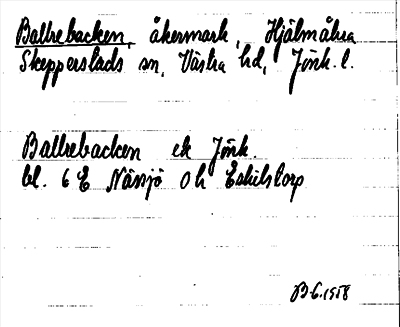 Ballrebacken, åkermark, Hjälmåkra
Skepperstads sn, Västra hd, Jönk. l.
Ballrebacken ek Jönk.
bl. 6 E Nässjö 0 h Eskilstorp
B-6.1958